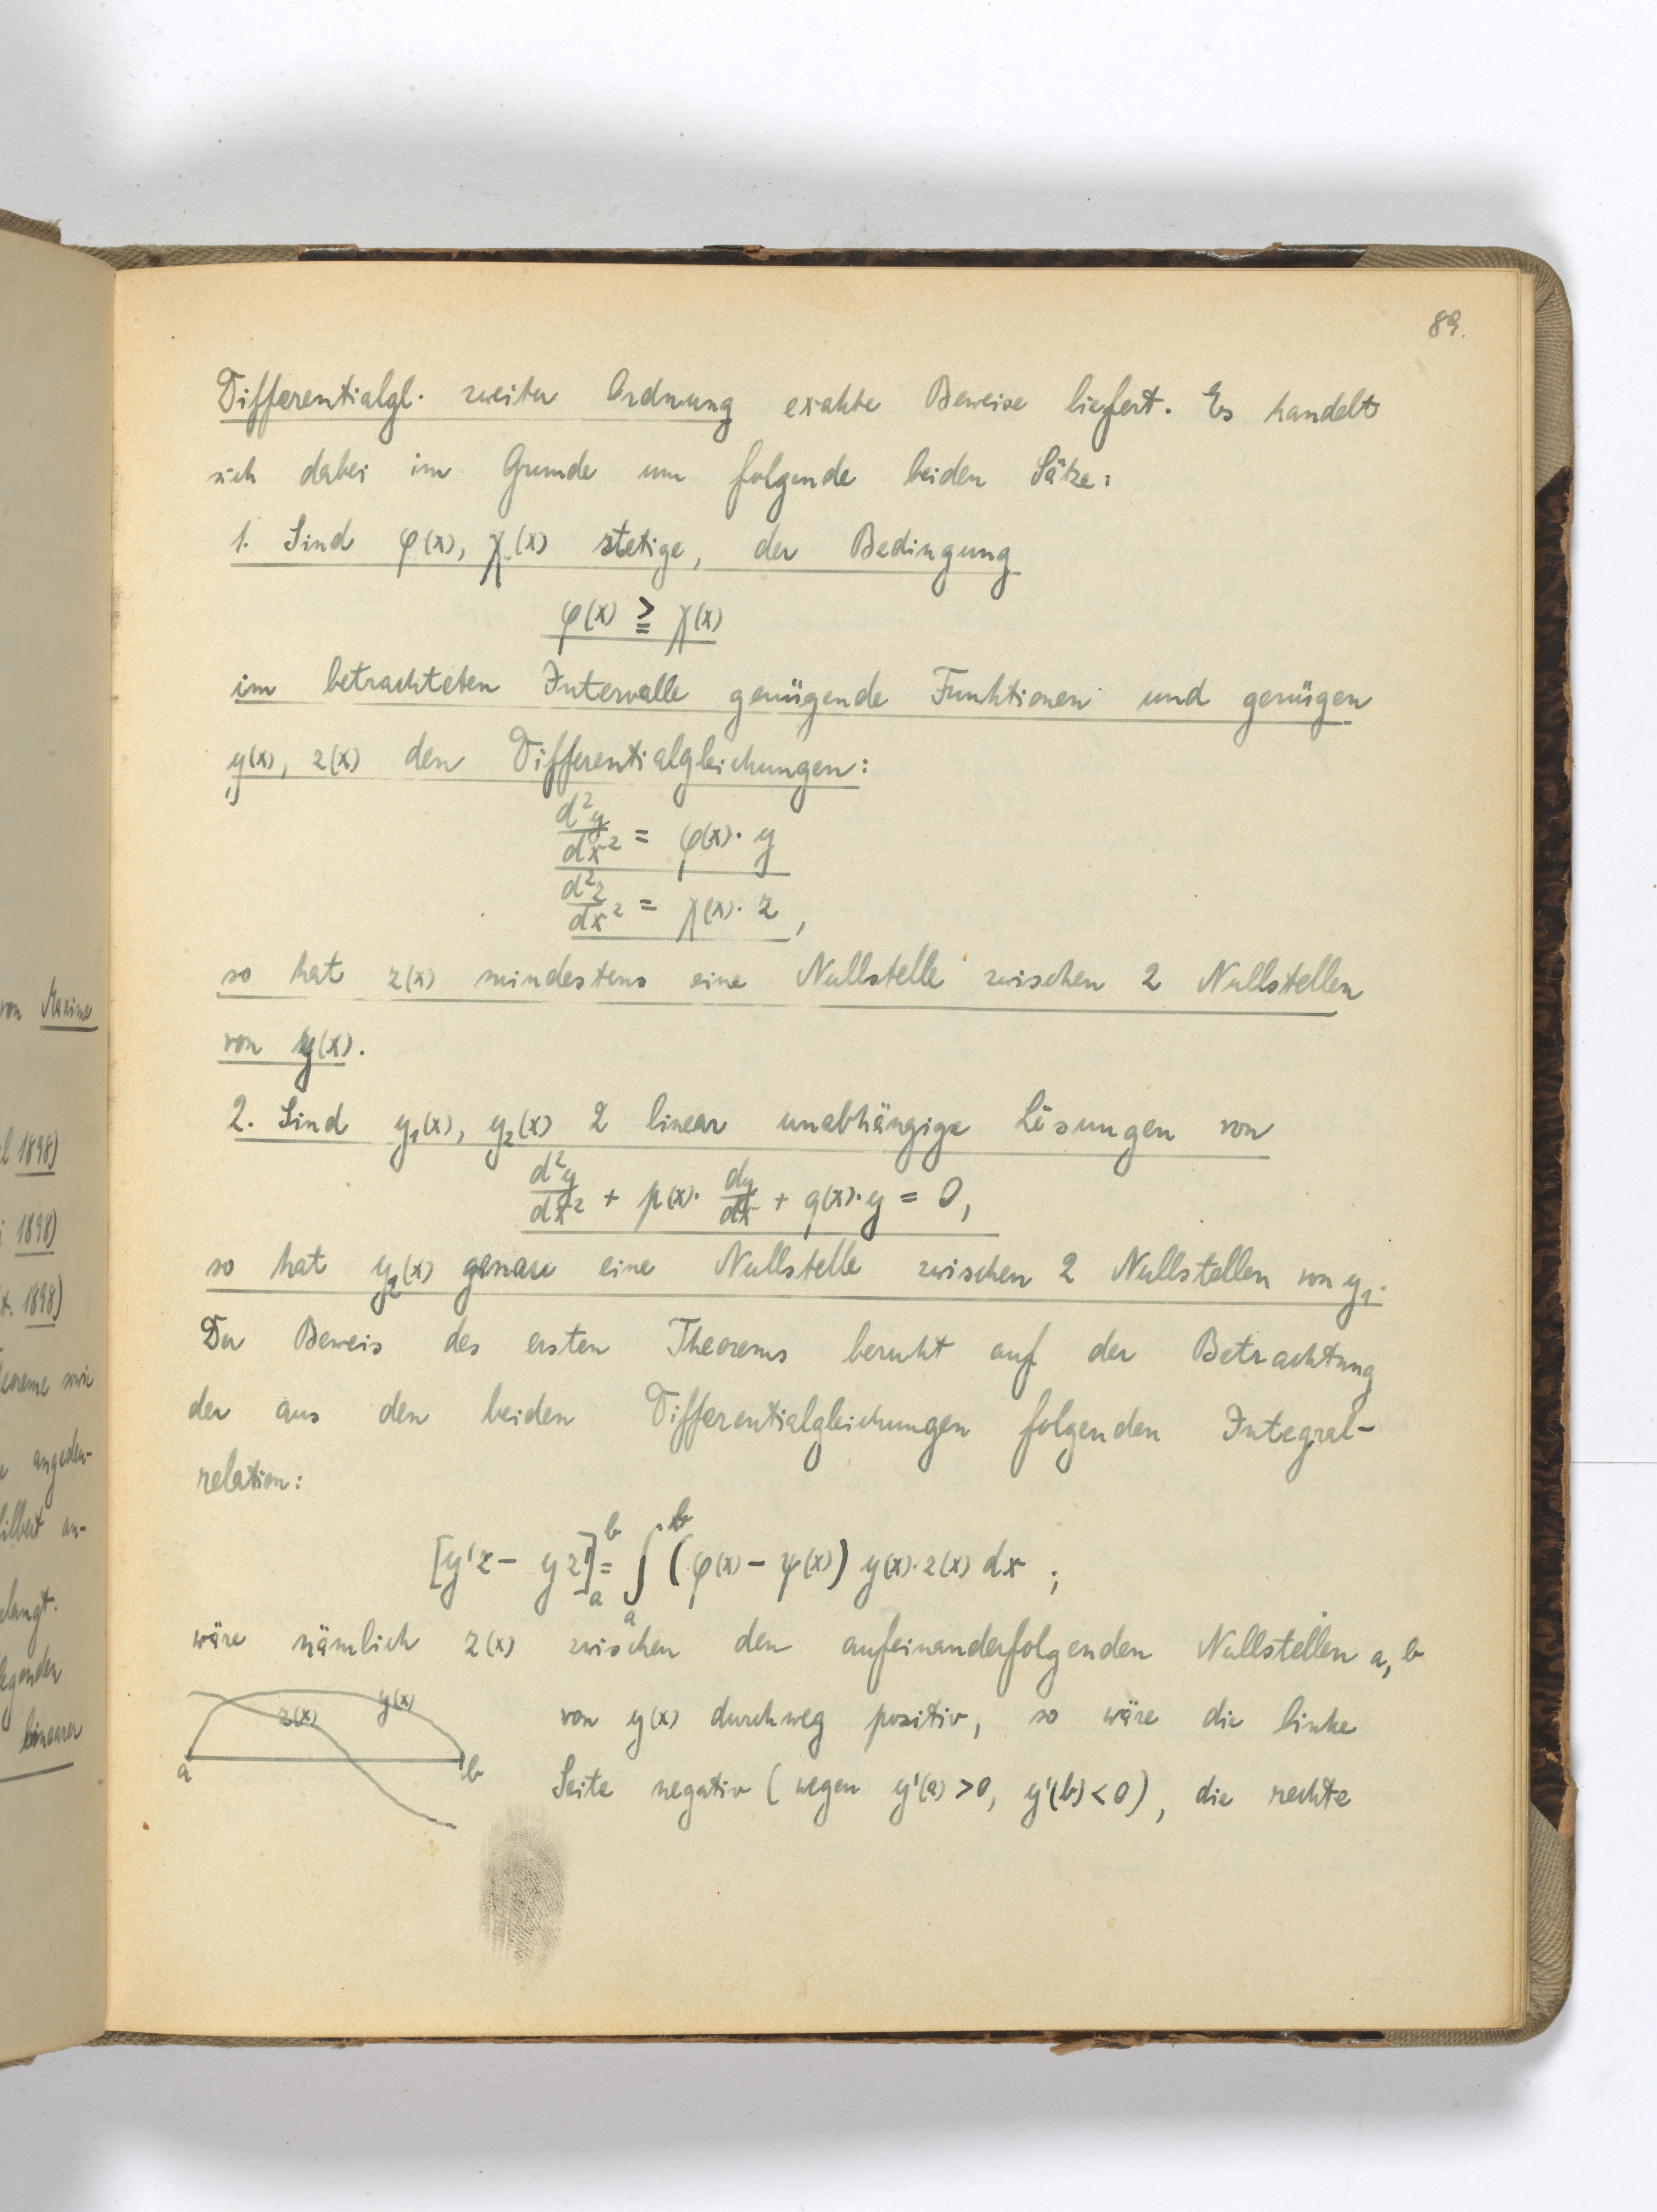 89.
Differentialgl. zweiter Ordnung exakte Beweise liefert. Es handelt
sich dabei im Grunde um folgende beiden Sätze:
1. Sind φ(x), χ(x) stetige, der Bedingung
φ(x) ≧ χ(x)
im betrachteten Intervalle genügende Funktionen und genügen
y(x), z(x) den Differentialgleichungen:
d²y/dx² = φ(x)· y
d²z/dx² = χ(x)· z,
so hat z(x) mindestens eine Nullstelle zwischen 2 Nullstellen
von y(x).
2. Sind y₁(x), y₂(x) 2 linear unabhängige Lösungen von
d²y/dx² + p(x)· dy/dx + q(x)·y = 0,
so hat y₂(x) genau eine Nullstelle zwischen 2 Nullstellen von y₁.
Der Beweis des ersten Theorems beruht auf der Betrachtung
der aus den beiden Differentialgleichungen folgenden Integral-
relation:
[y'z - yz']ₐᵇ = ∫ₐᵇ (φ(x) - ψ(x)) y(x)·z(x) dx ;
wäre nämlich z(x) zwischen den aufeinanderfolgenden Nullstellen a, b
von y(x) durchweg positiv, so wäre die linke
Seite negativ (wegen y'(a) > 0, y'(b) < 0), die rechte
z(x) y(x)
a b
von Maxime
1898)
1898)
1898)
sowie
angedeu-
an-
linearer